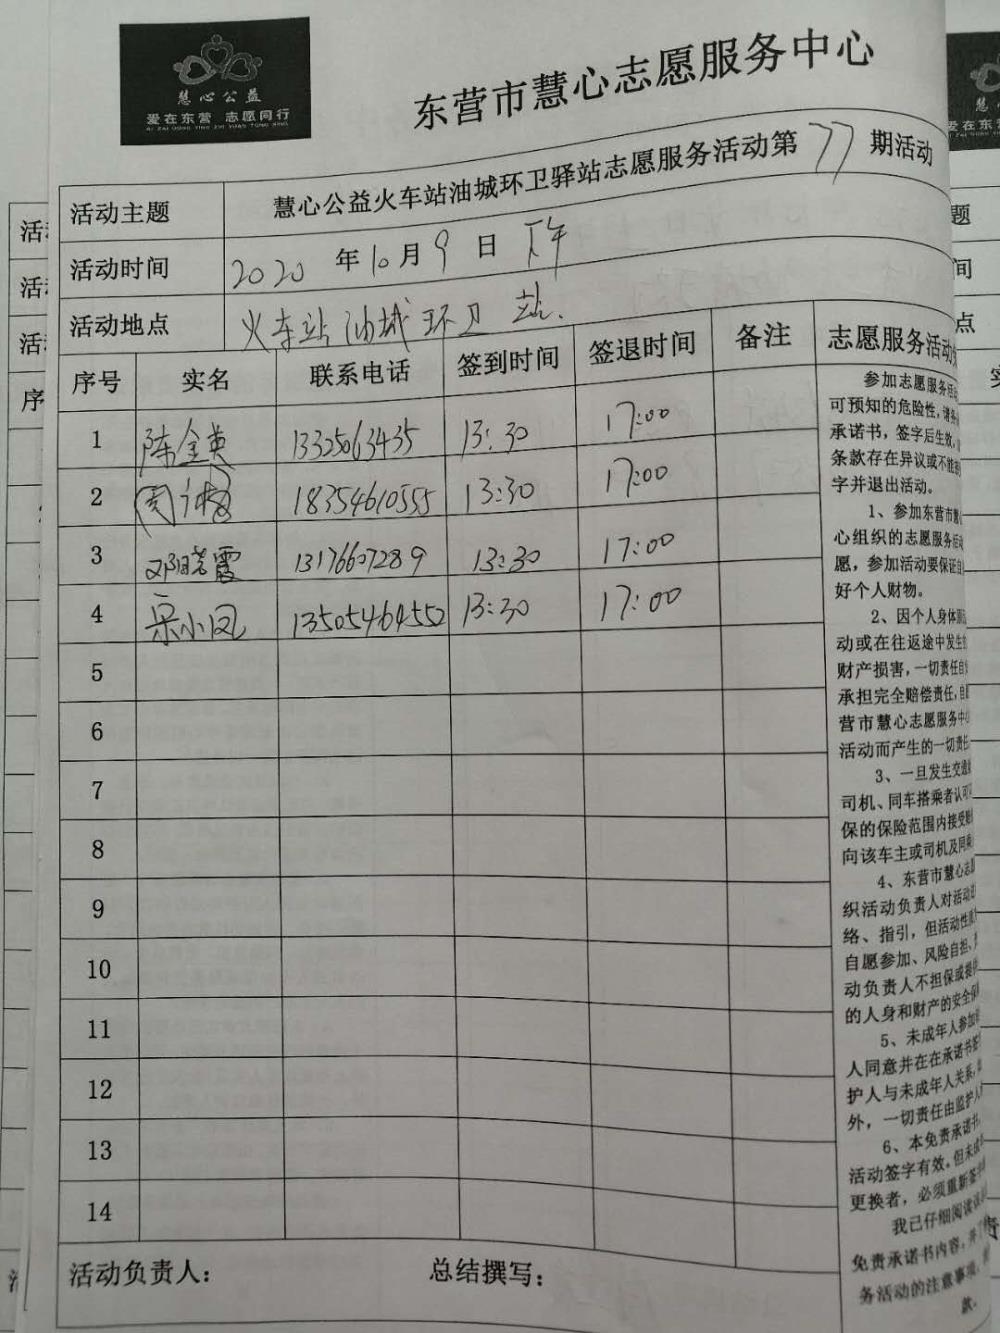 慧心公益
爱在东营 志愿同行
AI ZAI DONG YING ZHI YUAN TONG XING
东营市慧心志愿服务中心
活动主题 慧心公益火车站油城环卫驿站志愿服务活动第77期活动
活动时间 2020年10月9日 下午
活动地点 火车站油城环卫站.
序号 实名 联系电话 签到时间 签退时间 备注
1 陈金英 13325063435 13:30 17:00
2 周 18354610555 13:30 17:00
3 邓晓霞 13176607289 13:30 17:00
4 宋小凤 13505464552 13:30 17:00
5
6
7
8
9
10
11
12
13
14
活动负责人： 总结撰写：
志愿服务活动
参加志愿服务活
可预知的危险性，请务
承诺书，签字后生效，
条款存在异议或不能
字并退出活动。
1、参加东营市慧
心组织的志愿服务活动
愿，参加活动要保证自
好个人财物。
2、因个人身体原
动或在往返途中发生
财产损害，一切责任自
承担完全赔偿责任，自
营市慧心志愿服务中
活动而产生的一切责任
3、一旦发生交通
司机、同车搭乘者认可
保的保险范围内接受赔
向该车主或司机及同乘
4、东营市慧心志
织活动负责人对活动进
络、指引，但活动性质
自愿参加、风险自担、
动负责人不担保或提供
的人身和财产的安全保
5、未成年人参加
人同意并在在承诺书签
护人与未成年人关系，
外，一切责任由监护人
6、本免责承诺书，
活动签字有效。但未成
更换者，必须重新签
我已仔细阅读该
免责承诺书内容，并
务活动的注意事项，
款。